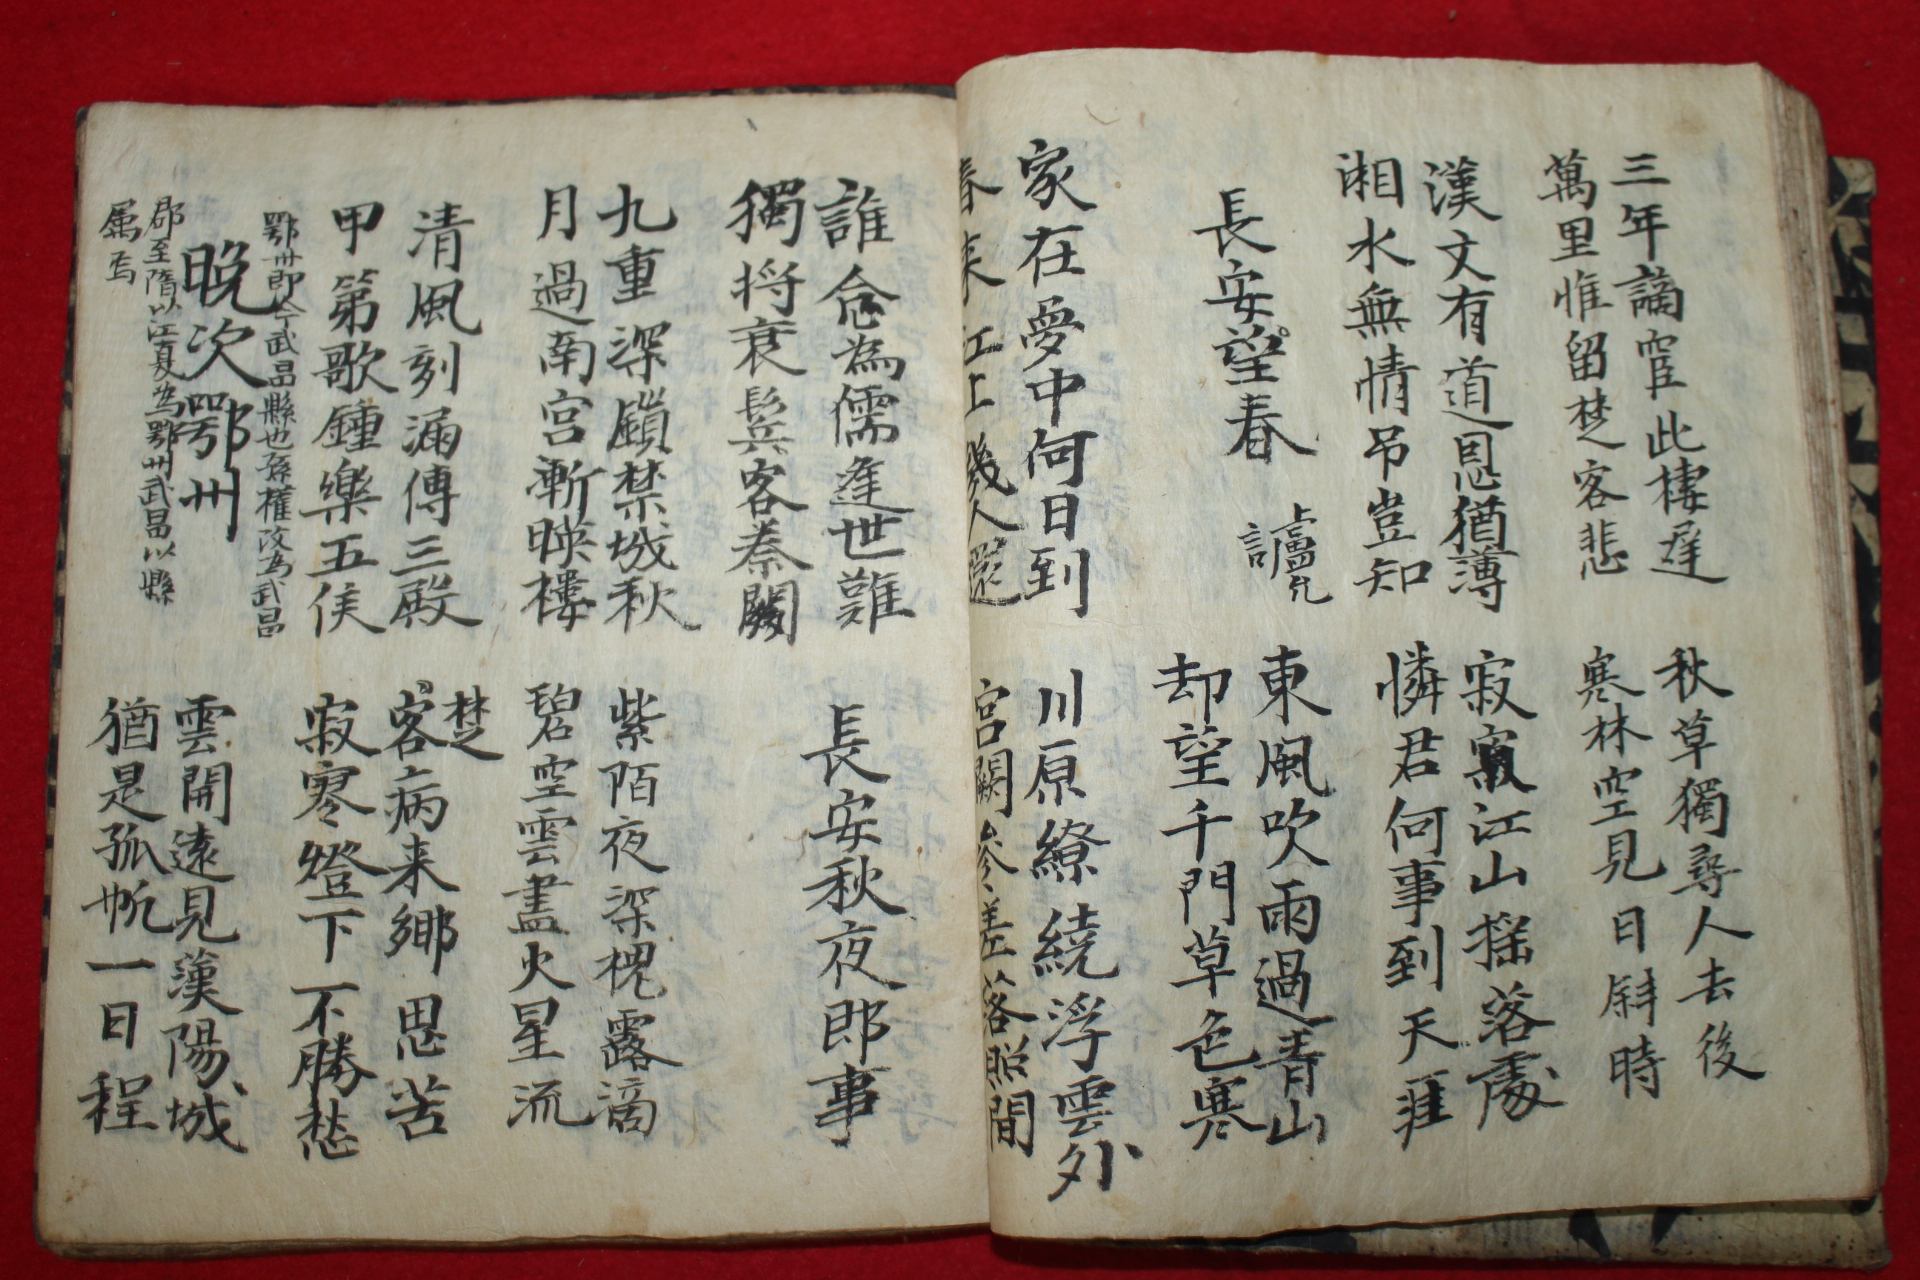 三年謫宦此棲遲
萬里惟留楚客悲
秋草獨尋人去後
寒林空見日斜時
漢文有道恩猶薄
湘水無情吊豈知
寂寞江山搖落處
憐君何事到天涯
長安望春
盧允言
東風吹雨過青山
却望千門草色寒
家在夢中何日到
春来江上幾人還
川原繚繞浮雲外
宮闕參差落照間
誰念為儒逢世難
獨將衰鬂客秦關
長安秋夜即事
九重深鎖禁城秋
月過南宮漸映樓
紫陌夜深槐露滴
碧空雲盡火星流
清風刻漏傳三殿
甲第歌鍾樂五侯
楚客病来鄉思苦
寂寥燈下不勝愁
鄂州即今武昌縣也孫權改為武昌
晚次鄂州
郡至隋以江夏為鄂州武昌以縣
属焉
雲開遠見漢陽城
猶是孤帆一日程